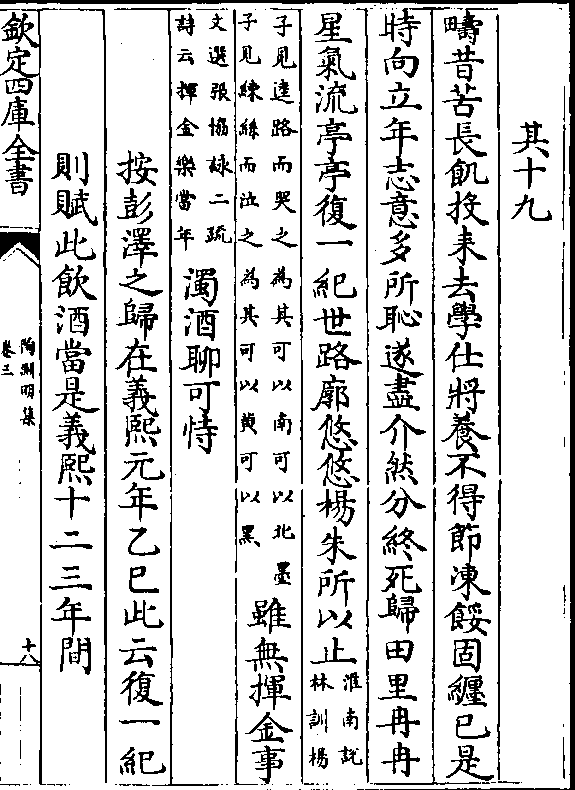 其十九
疇昔苦長飢投耒去學仕將養不得節凍餒固纏已是
時向立年志意多所恥遂盡介然分終死歸田里冉冉
星氣流亭亭復一紀世路廓悠悠楊朱所以止淮南説
林訓楊
子見逵路而哭之為其可以南可以北墨
子見練絲而泣之為其可以黄可以黑
雖無揮金事
文選張協詠二疏
詩云揮金樂當年
濁酒聊可恃
按彭澤之歸在義熙元年乙巳此云復一紀
則賦此飲酒當是義熙十二三年間
欽定四庫全書
陶淵明集
卷三
十八